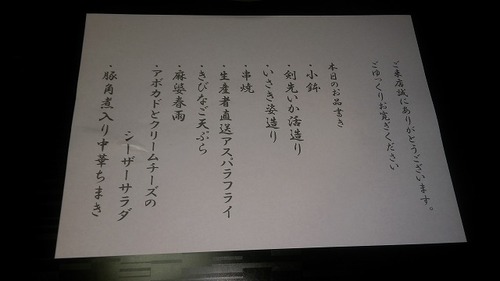 ご来店誠にありがとうございます。
ごゆっくりお寛ぎください
本日のお品書き
・小鉢
・剣先いか活造り
・いさき姿造り
・串焼
・生産者直送アスパラフライ
・きびなご天ぷら
・麻婆春雨
・アボカドとクリームチーズの
シーザーサラダ
・豚角煮入り中華ちまき